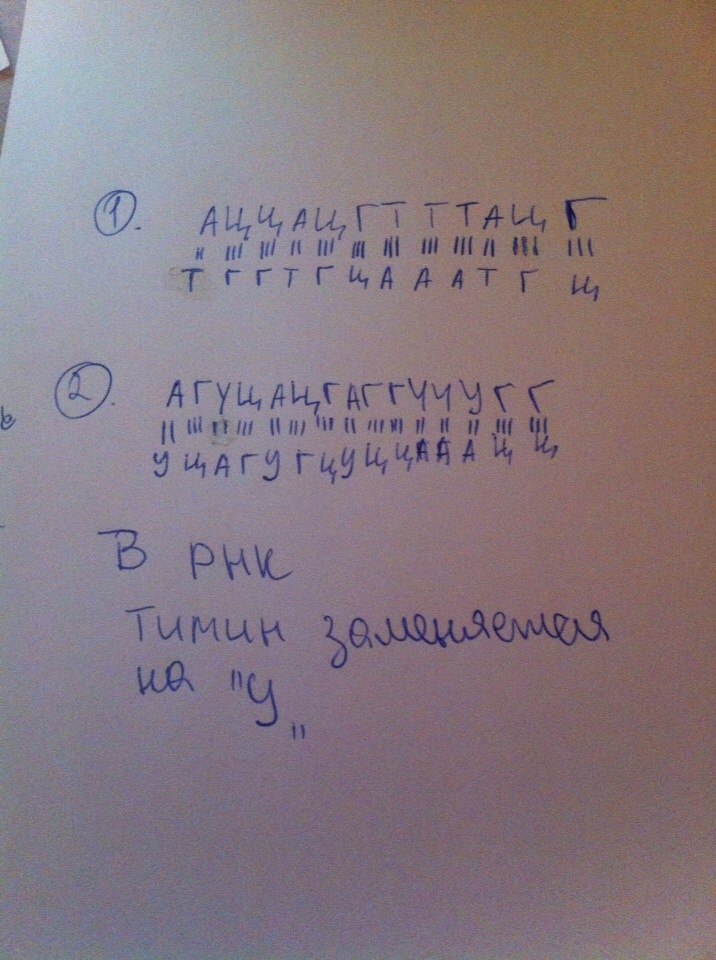 1. АЦЦАЦГТТТАЦГ
ТГГТГЦАААТГЦ
2. АГУЦАЦГАГГУУУГГ
УЦАГУГЦУЦЦАААЦЦ
В РНК
Тимин заменяется
на "У"